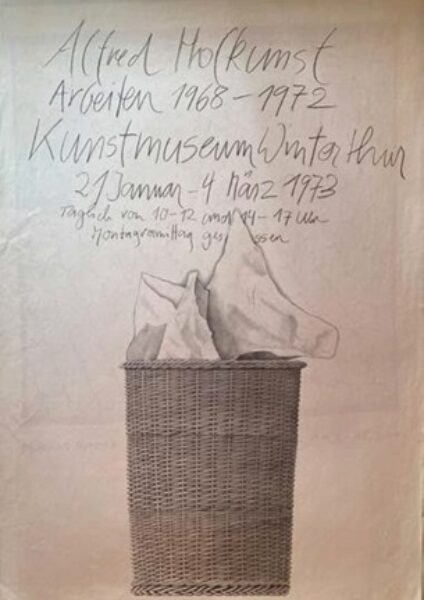 Alfred Hofkunst
Arbeiten 1968 – 1972
Kunstmuseum Winterthur
21 Januar – 4 März 1973
Täglich von 10 – 12 und 14 – 17 Uhr
Montagvormittag ges ssen